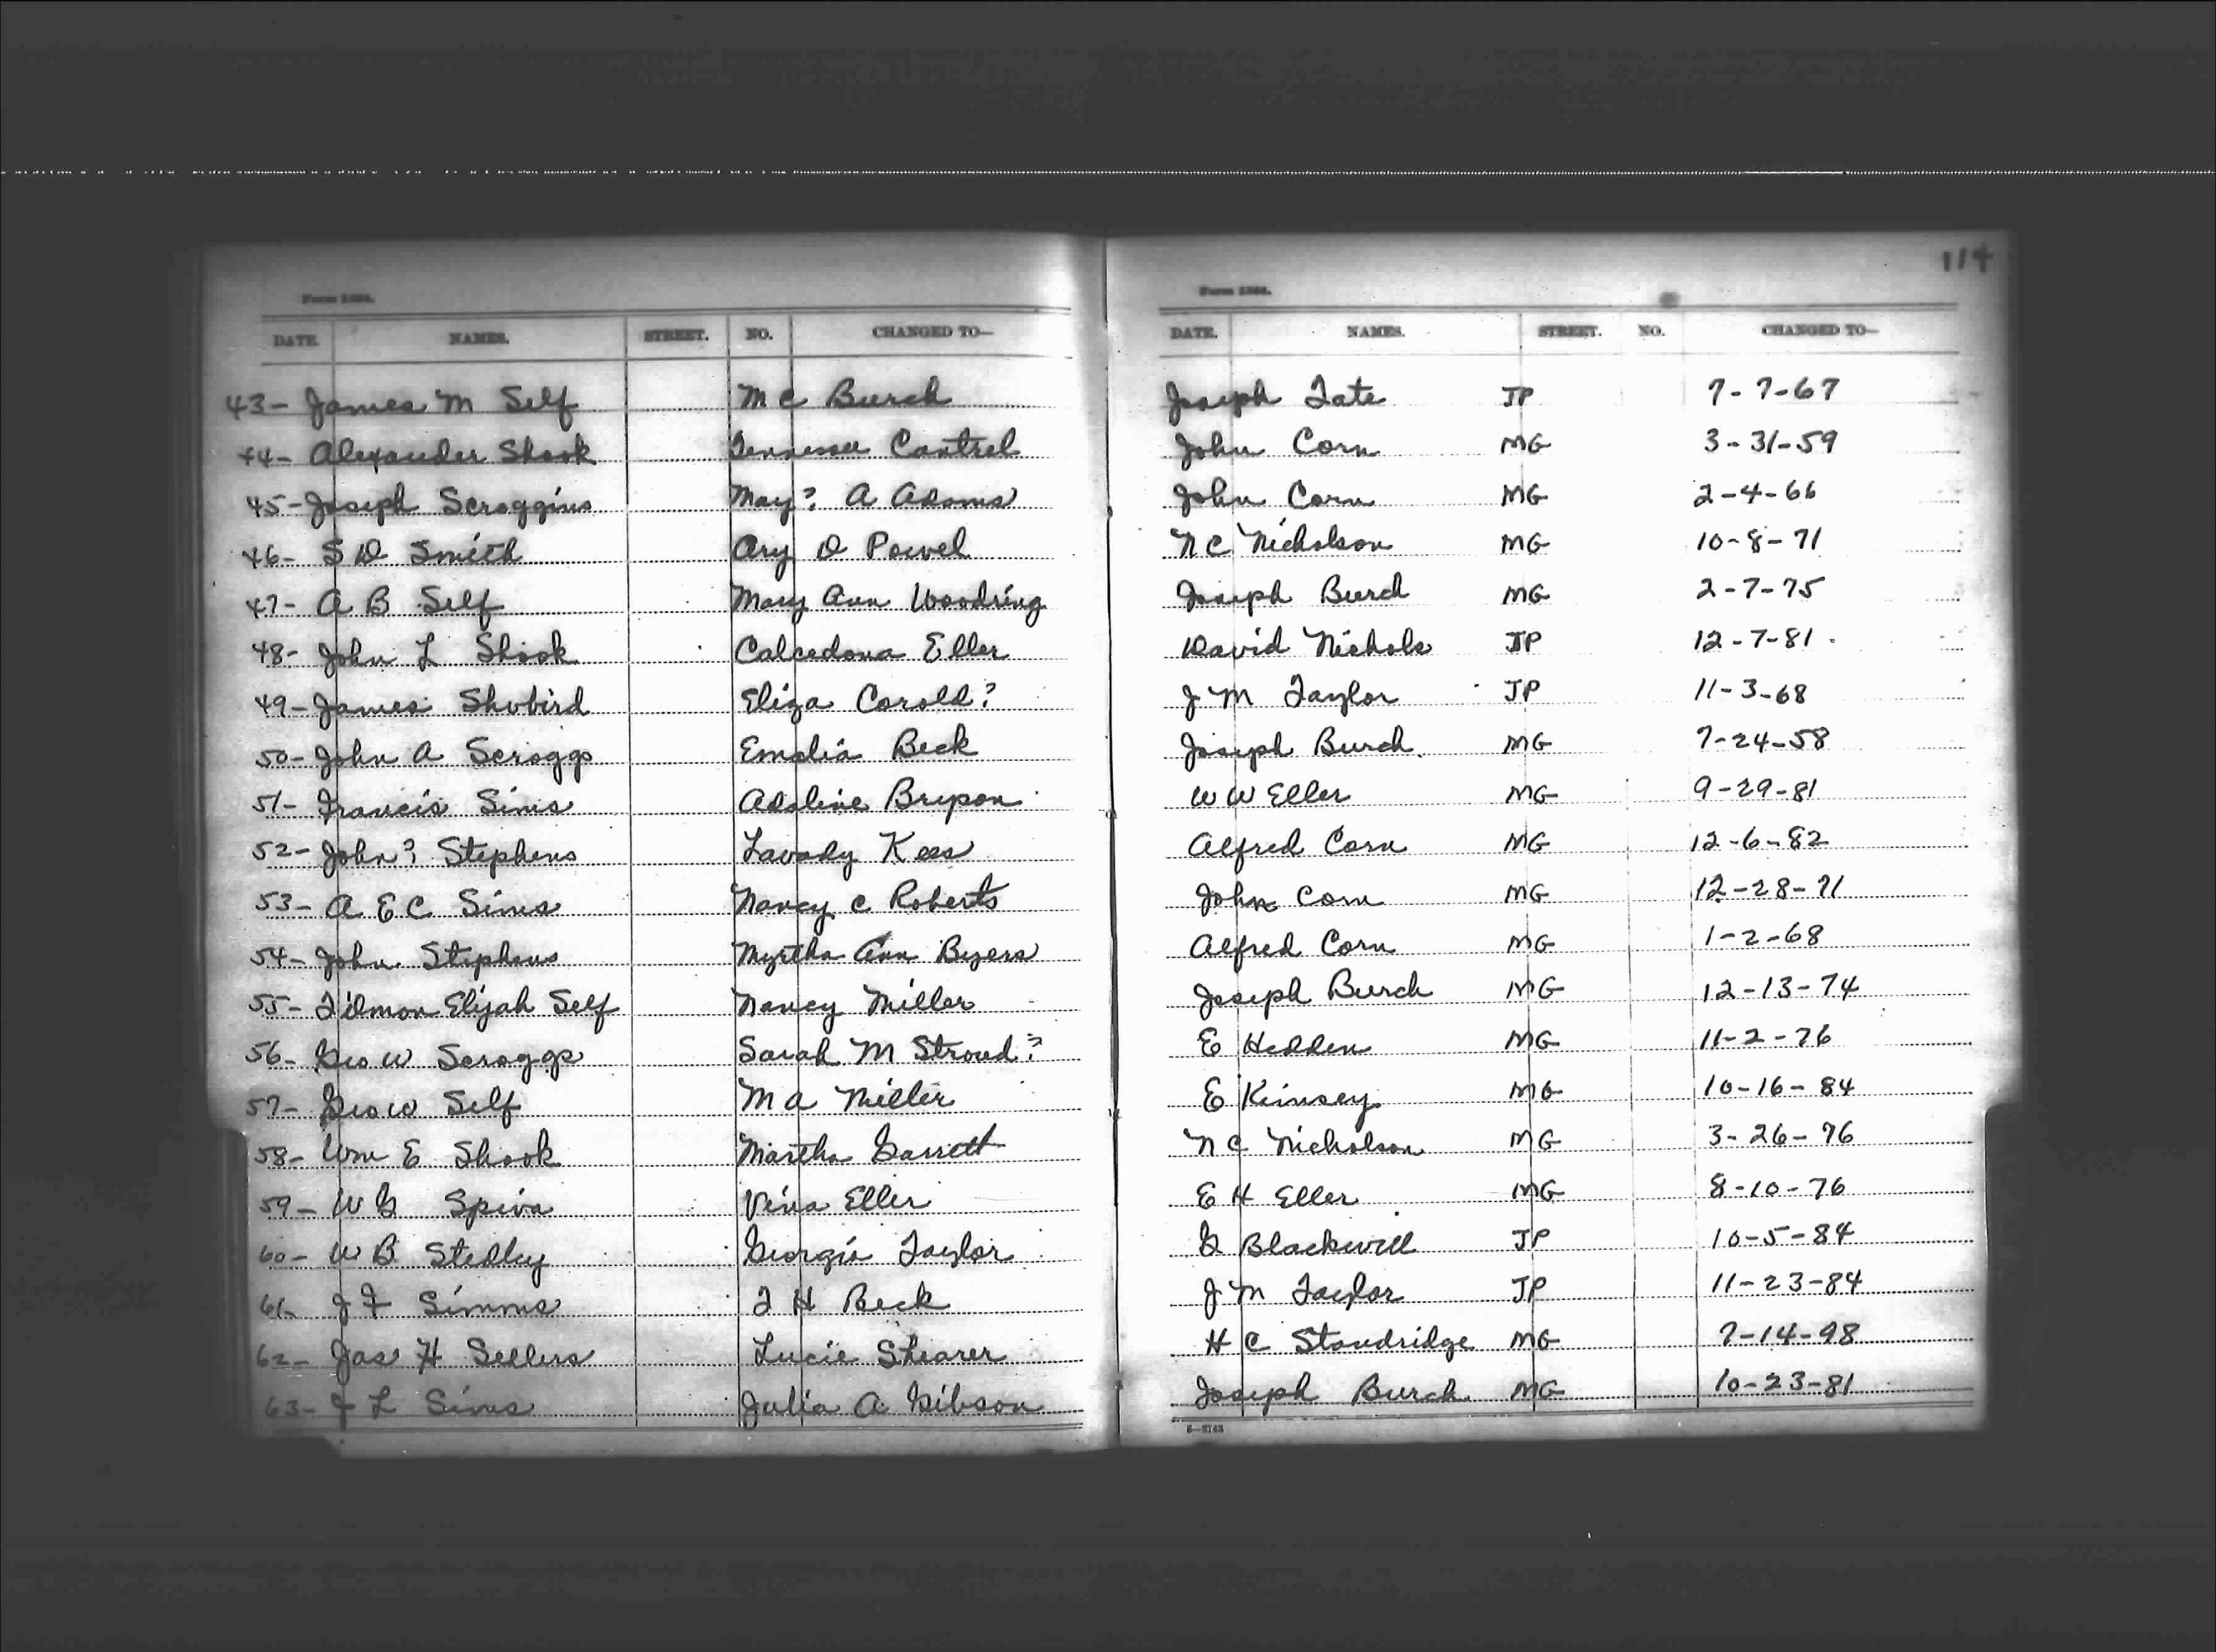 114
Form 1364. Form 1364.
DATE. NAMES. STREET. NO. CHANGED TO— DATE. NAMES. STREET. NO. CHANGED TO—
43- James M Self M C Burch Joseph Tate JP 7-7-67
44- Alexander Shook Tennessee Cantrel John Corn MG 3-31-59
45- Joseph Scroggins May? A Adams John Corn MG 2-4-66
46- S D Smith Ary D Powel N C Nicholson MG 10-8-71
47- A B Self Mary Ann Woodring Joseph Burch MG 2-7-75
48- John L Shook Calcedona Eller David Nichols JP 12-7-81
49- James Shubird Eliza Corold? J M Taylor JP 11-3-68
50- John A Scroggs Emalia Beck Joseph Burch MG 7-24-58
51- Francis Sims Adaline Bryson W W Eller MG 9-29-81
52- John? Stephens Lavady Kees Alfred Corn MG 12-6-82
53- A E C Sims Nancy C Roberts John Corn MG 12-28-71
54- John Stephens Myrtha Ann Byers Alfred Corn MG 1-2-68
55- Tilmon Elijah Self Nancy Miller Joseph Burch MG 12-13-74
56- Geo W Scroggs Sarah M Stroud? E Hedden MG 11-2-76
57- Geo W Self M A Miller E Kimsey MG 10-16-84
58- Wm E Shook Martha Garrett N C Nicholson MG 3-26-76
59- W G Spiva Vina Eller E H Eller MG 8-10-76
60- W B Stedley Georgia Taylor G Blackwell JP 10-5-84
61- J F Simms T H Beck J M Taylor JP 11-23-84
62- Jas H Sellers Lucie Shearer H C Standridge MG 7-14-98
63- J L Sims Julia A Gibson Joseph Burch MG 10-23-81